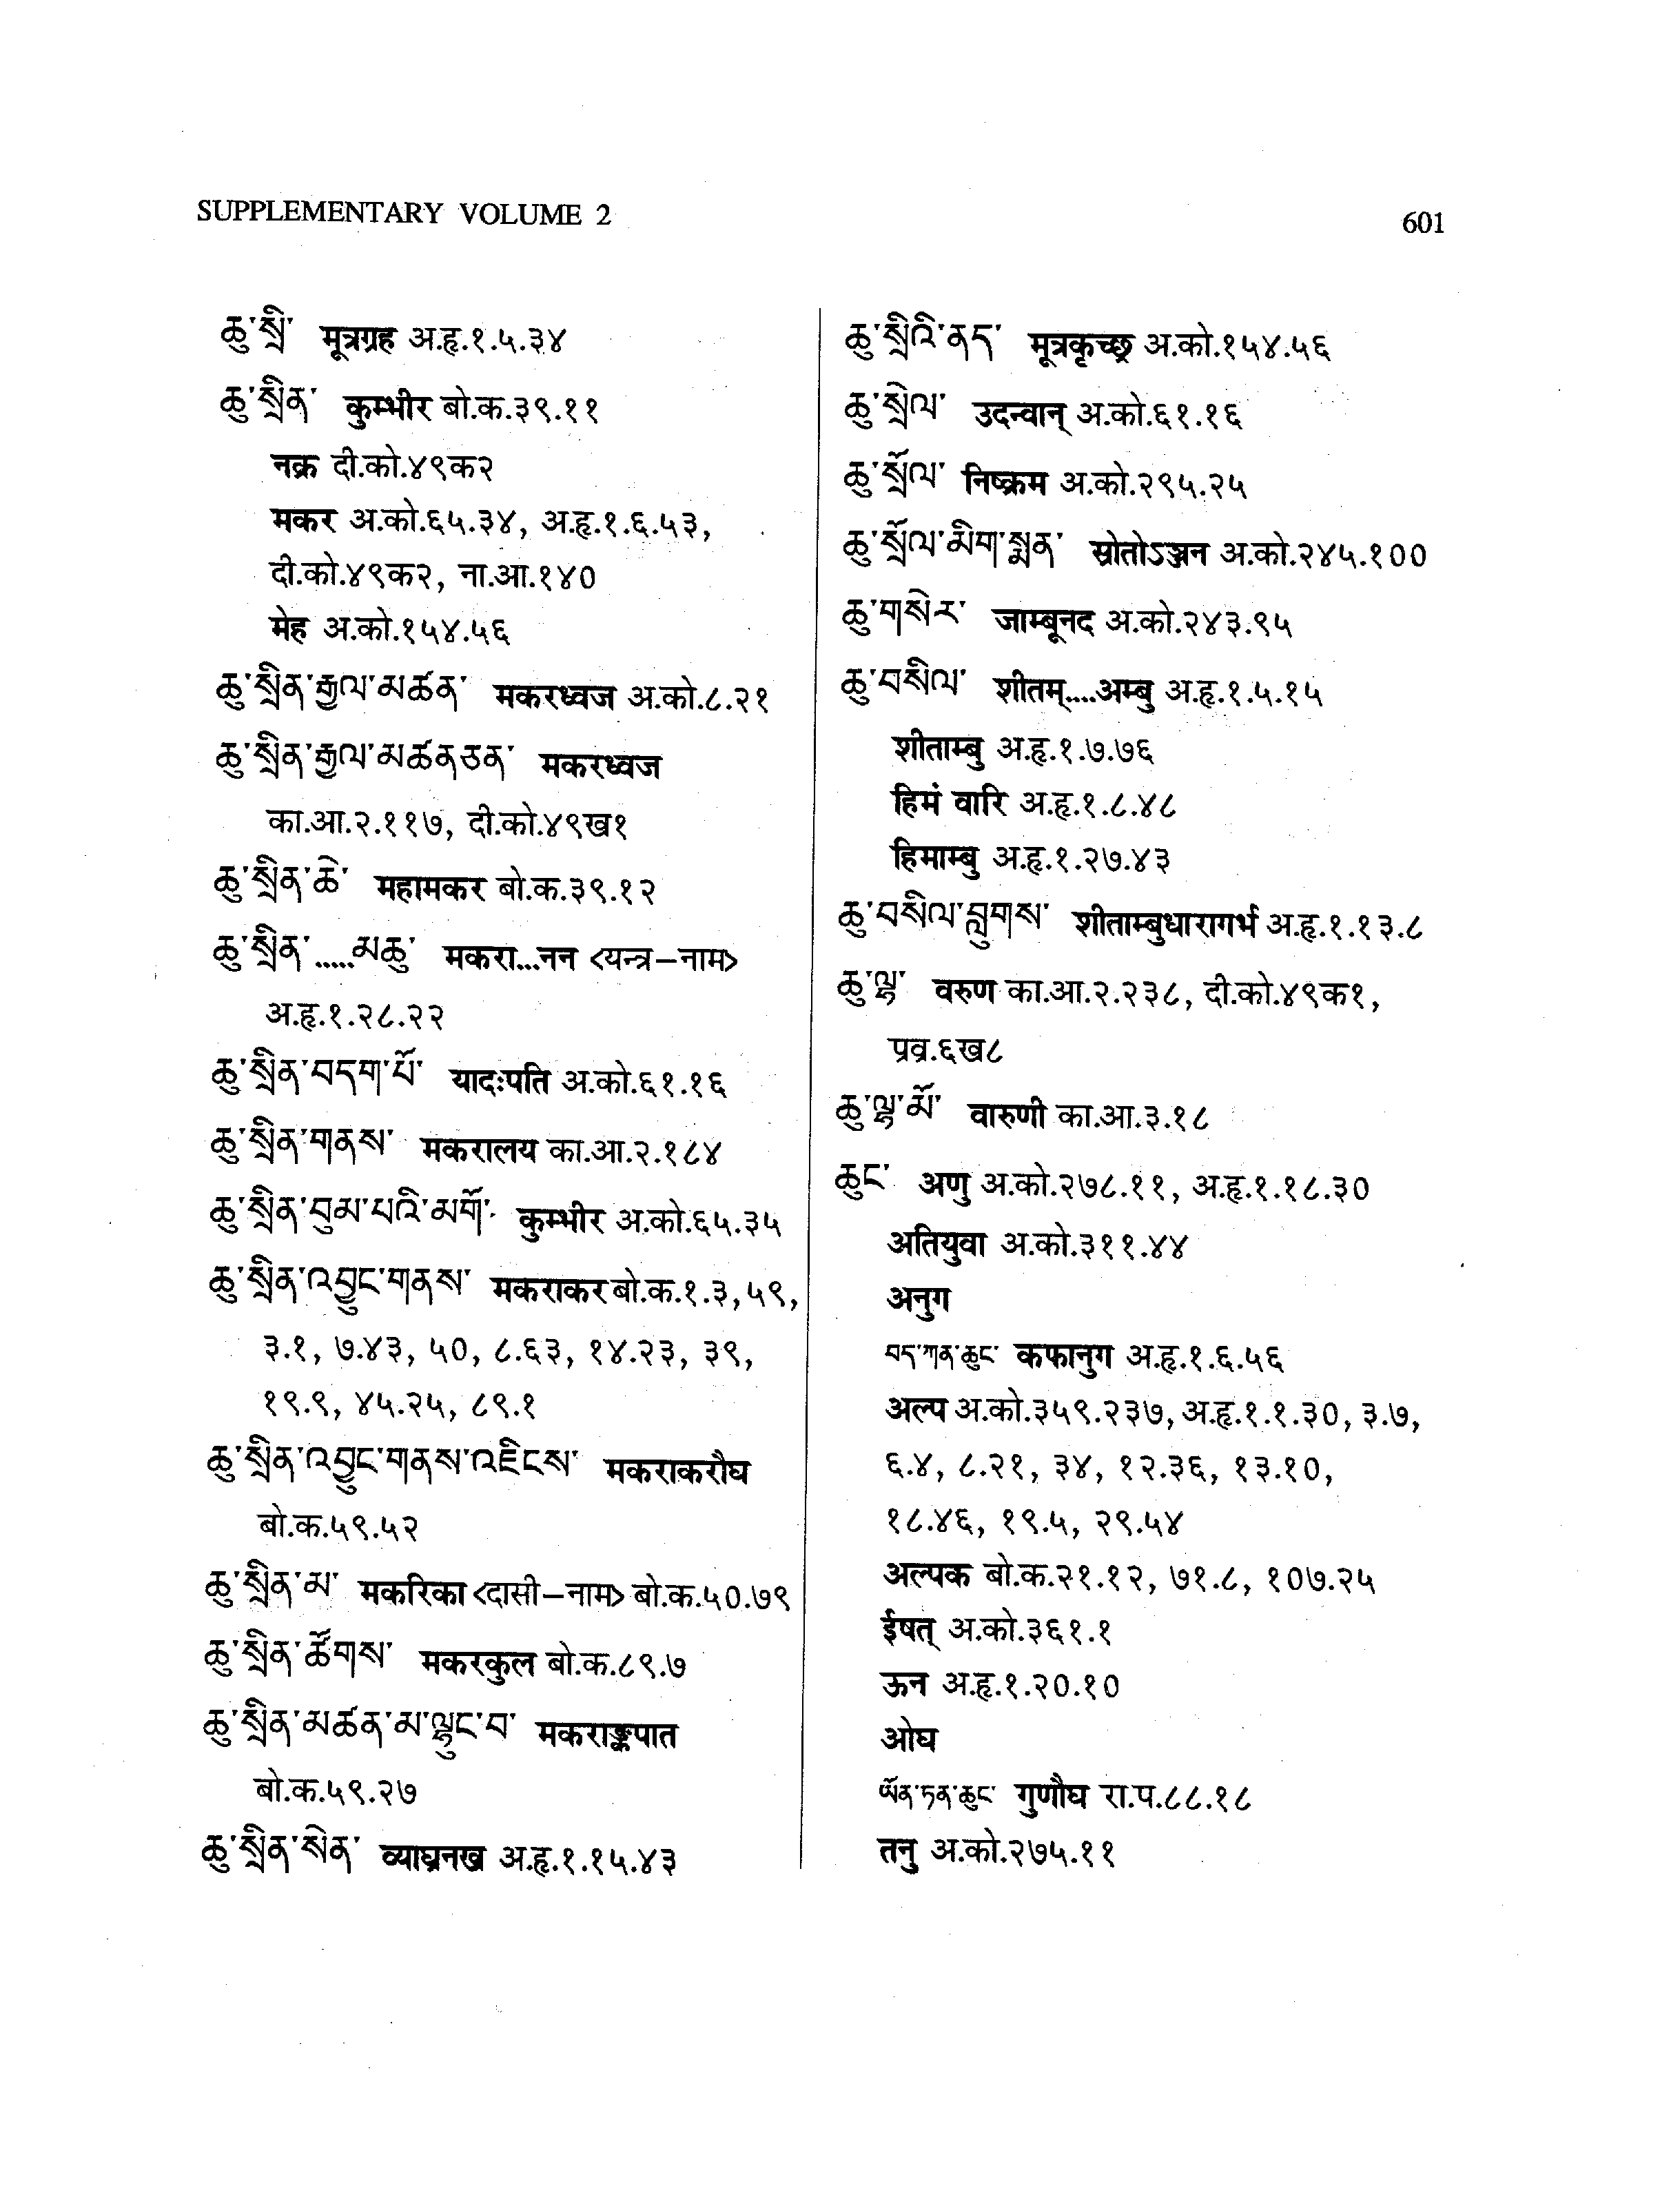 SUPPLEMENTARY VOLUME 2
601
ཆུ་སྲི་ मूत्रग्रह अ.हृ.१.५.३४
ཆུ་སྲིན་ कुम्भीर बो.क.३९.११
नक्र दी.को.४९क२
मकर अ.को.६५.३४, अ.हृ.१.६.५३,
दी.को.४९क२, ना.आ.१४०
मेह अ.को.१५४.५६
ཆུ་སྲིན་རྒྱལ་མཚན་ मकरध्वज अ.को.८.२१
ཆུ་སྲིན་རྒྱལ་མཚནཅན་ मकरध्वज
का.आ.२.११७, दी.को.४९ख१
ཆུ་སྲིན་ཆེ་ महामकर बो.क.३९.१२
ཆུ་སྲིན་.....མཆུ་ मकरा...नन <यन्त्र–नाम>
अ.हृ.१.२८.२२
ཆུ་སྲིན་བདག་པོ་ यादःपति अ.को.६१.१६
ཆུ་སྲིན་གནས་ मकरालय का.आ.२.१८४
ཆུ་སྲིན་བུམ་པའི་མགོ་ कुम्भीर अ.को.६५.३५
ཆུ་སྲིན་འབྱུང་གནས་ मकराकर बो.क.१.३,५९,
३.१, ७.४३, ५०, ८.६३, १४.२३, ३९,
१९.९, ४५.२५, ८९.१
ཆུ་སྲིན་འབྱུང་གནས་འཇིངས་ मकराकरौघ
बो.क.५९.५२
ཆུ་སྲིན་མ་ मकरिका <दासी–नाम> बो.क.५०.७९
ཆུ་སྲིན་ཚོགས་ मकरकुल बो.क.८९.७
ཆུ་སྲིན་མཚན་མ་ལྟུང་བ་ मकराङ्कपात
बो.क.५९.२७
ཆུ་སྲིན་སེན་ व्याघ्रनख अ.हृ.१.१५.४३
ཆུ་སྲིའི་ནད་ मूत्रकृच्छ्र अ.को.१५४.५६
ཆུ་སྲེལ་ उदन्वान् अ.को.६१.१६
ཆུ་སྲོལ་ निष्क्रम अ.को.२९५.२५
ཆུ་སྲོལ་མིག་སྨན་ स्रोतोऽञ्जन अ.को.२४५.१००
ཆུ་གསེར་ जाम्बूनद अ.को.२४३.९५
ཆུ་བསིལ་ शीतम्....अम्बु अ.हृ.१.५.१५
शीताम्बु अ.हृ.१.७.७६
हिमं वारि अ.हृ.१.८.४८
हिमाम्बु अ.हृ.१.२७.४३
ཆུ་བསིལ་བླུགས་ शीताम्बुधारागर्भ अ.हृ.१.१३.८
ཆུ་ལྷ་ वरुण का.आ.२.२३८, दी.को.४९क१,
प्रव्र.६ख८
ཆུ་ལྷ་མོ་ वारुणी का.आ.३.१८
ཆུང་ अणु अ.को.२७८.११, अ.हृ.१.१८.३०
अतियुवा अ.को.३११.४४
अनुग
བད་ཀན་ཆུང་ कफानुग अ.हृ.१.६.५६
अल्प अ.को.३५९.२३७, अ.हृ.१.१.३०, ३.७,
६.४, ८.२१, ३४, १२.३६, १३.१०,
१८.४६, १९.५, २९.५४
अल्पक बो.क.२१.१२, ७१.८, १०७.२५
ईषत् अ.को.३६१.१
ऊन अ.हृ.१.२०.१०
ओघ
ཡོན་ཏན་ཆུང་ गुणौघ रा.प.८८.१८
तनु अ.को.२७५.११